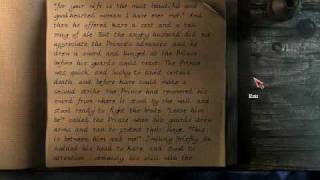 "for your wife is the most beautiful and
goodhearted woman I have ever met." And
then he offered Kara a seat and a tall
mug of ale. But the angry husband did not
appreciate the Prince's advances, and he
drew a sword and lunged at the Prince
before his guards could react. The Prince
was quick, and lucky to avoid certain
death, and before Kara could make a
second strike the Prince had recovered his
sword from where it stood by the wall, and
stood ready to fight the brute. "Leave him
be!" called the Prince when his guards drew
arms and ran to protect their liege. "This
is between him and me!" Smiling briefly, he
nodded his head to Kara, and stood to
attention, certainly his skill with the
Exit